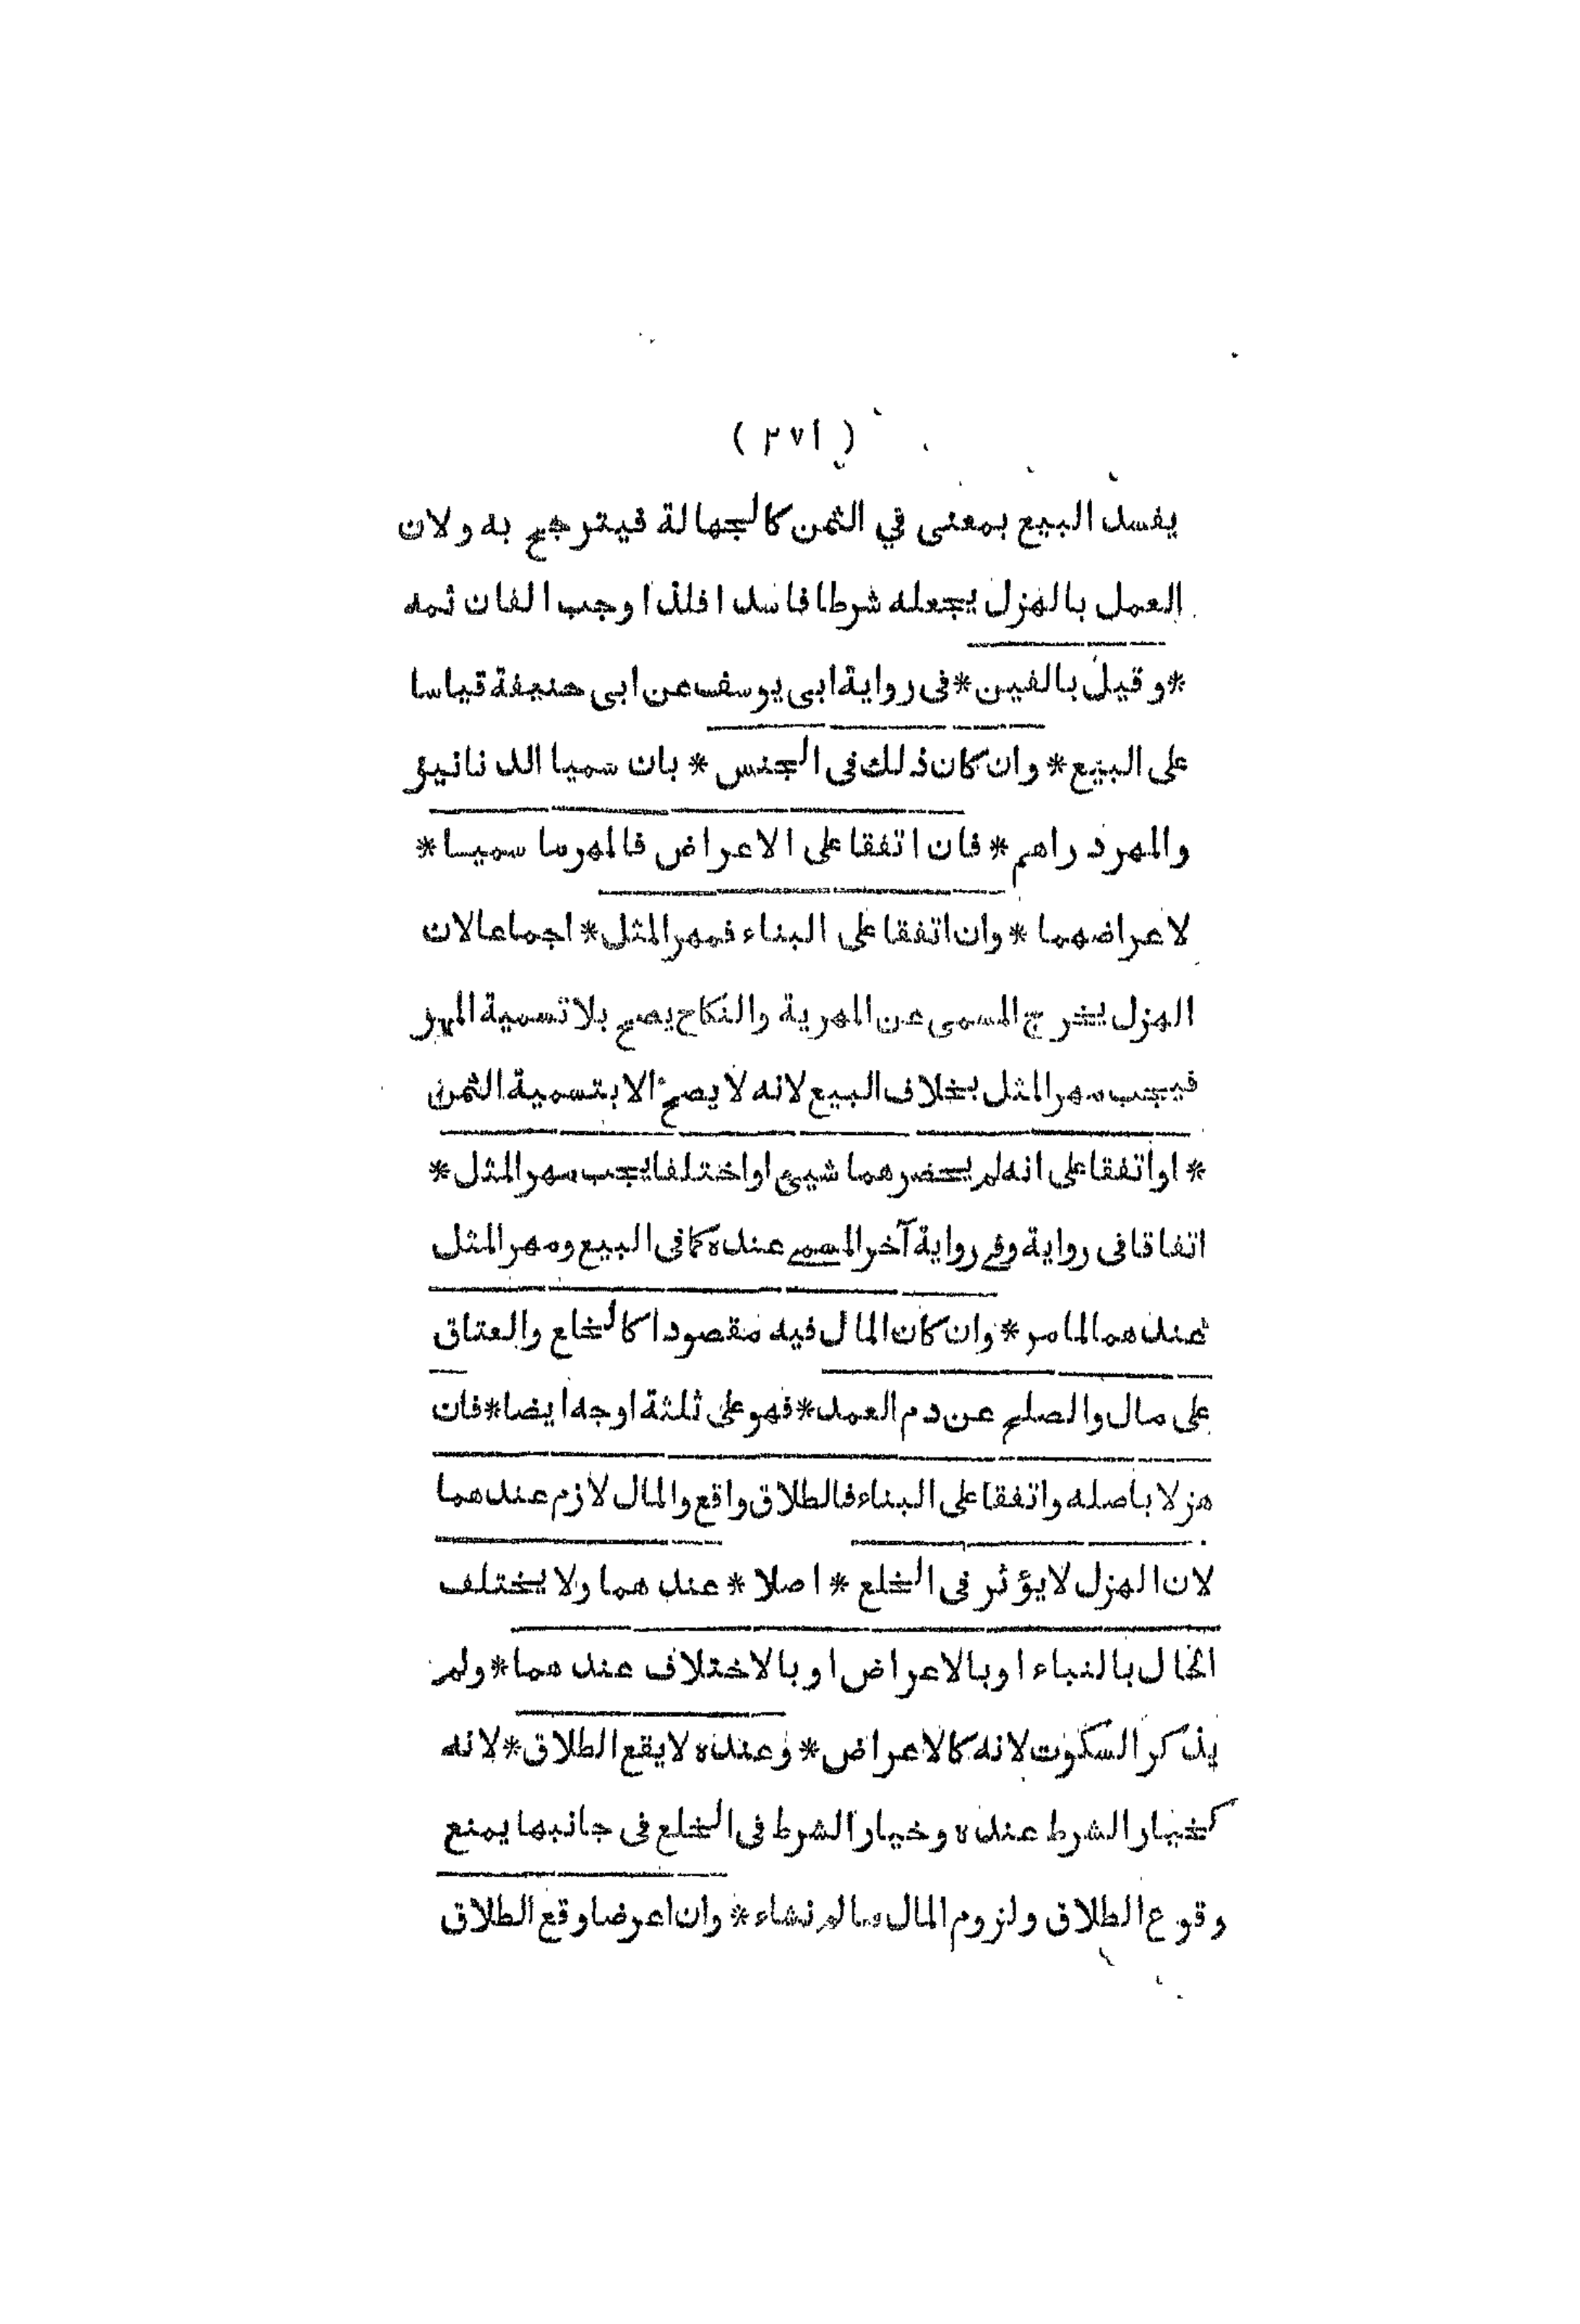 ( ٢٧١ )
يفسد البيع بمعنى في الثمن كالجهالة فيترجح به ولان
العمل بالهزل يجعله شرطا فاسدا فلذا وجب الفان ثمه
*وقيل بالفين*فى رواية ابى يوسف عن ابى حنيفة قياسا
على البيع* وان كان ذلك فى الجنس * بان سميا الدنانير
والمهر دراهم* فان اتفقا على الاعراض فالمهر ما سميا*
لاعراضهما *وان اتفقا على البناء فمهر المثل* اجماعا لان
الهزل يخرج المسمى عن المهرية والنكاح يصح بلا تسمية المهر
فيجب مهر المثل بخلاف البيع لانه لا يصح الا بتسمية الثمن
* او اتفقا على انه لم يحضرهما شيئ او اختلفا يجب مهر المثل*
اتفاقا فى رواية وفي رواية آخر المسمى عنده كما فى البيع ومهر المثل
عندهما لما مر* وان كان المال فيه مقصودا كالخلع والعتاق
على مال والصلح عن دم العمد*فهو على ثلثة اوجه ايضا*فان
هزلا باصله واتفقا على البناء فالطلاق واقع والمال لازم عندهما
لان الهزل لا يؤثر فى الخلع * اصلا * عندهما ولا يختلف
الحال بالنباء او بالاعراض او بالاختلاف عندهما*ولم
يذكر السكوت لانه كالاعراض* وعنده لا يقع الطلاق*لانه
كخيار الشرط عنده وخيار الشرط فى الخلع فى جانبها يمنع
وقوع الطلاق ولزوم المال ما لم نشاء* وان اعرضا وقع الطلاق